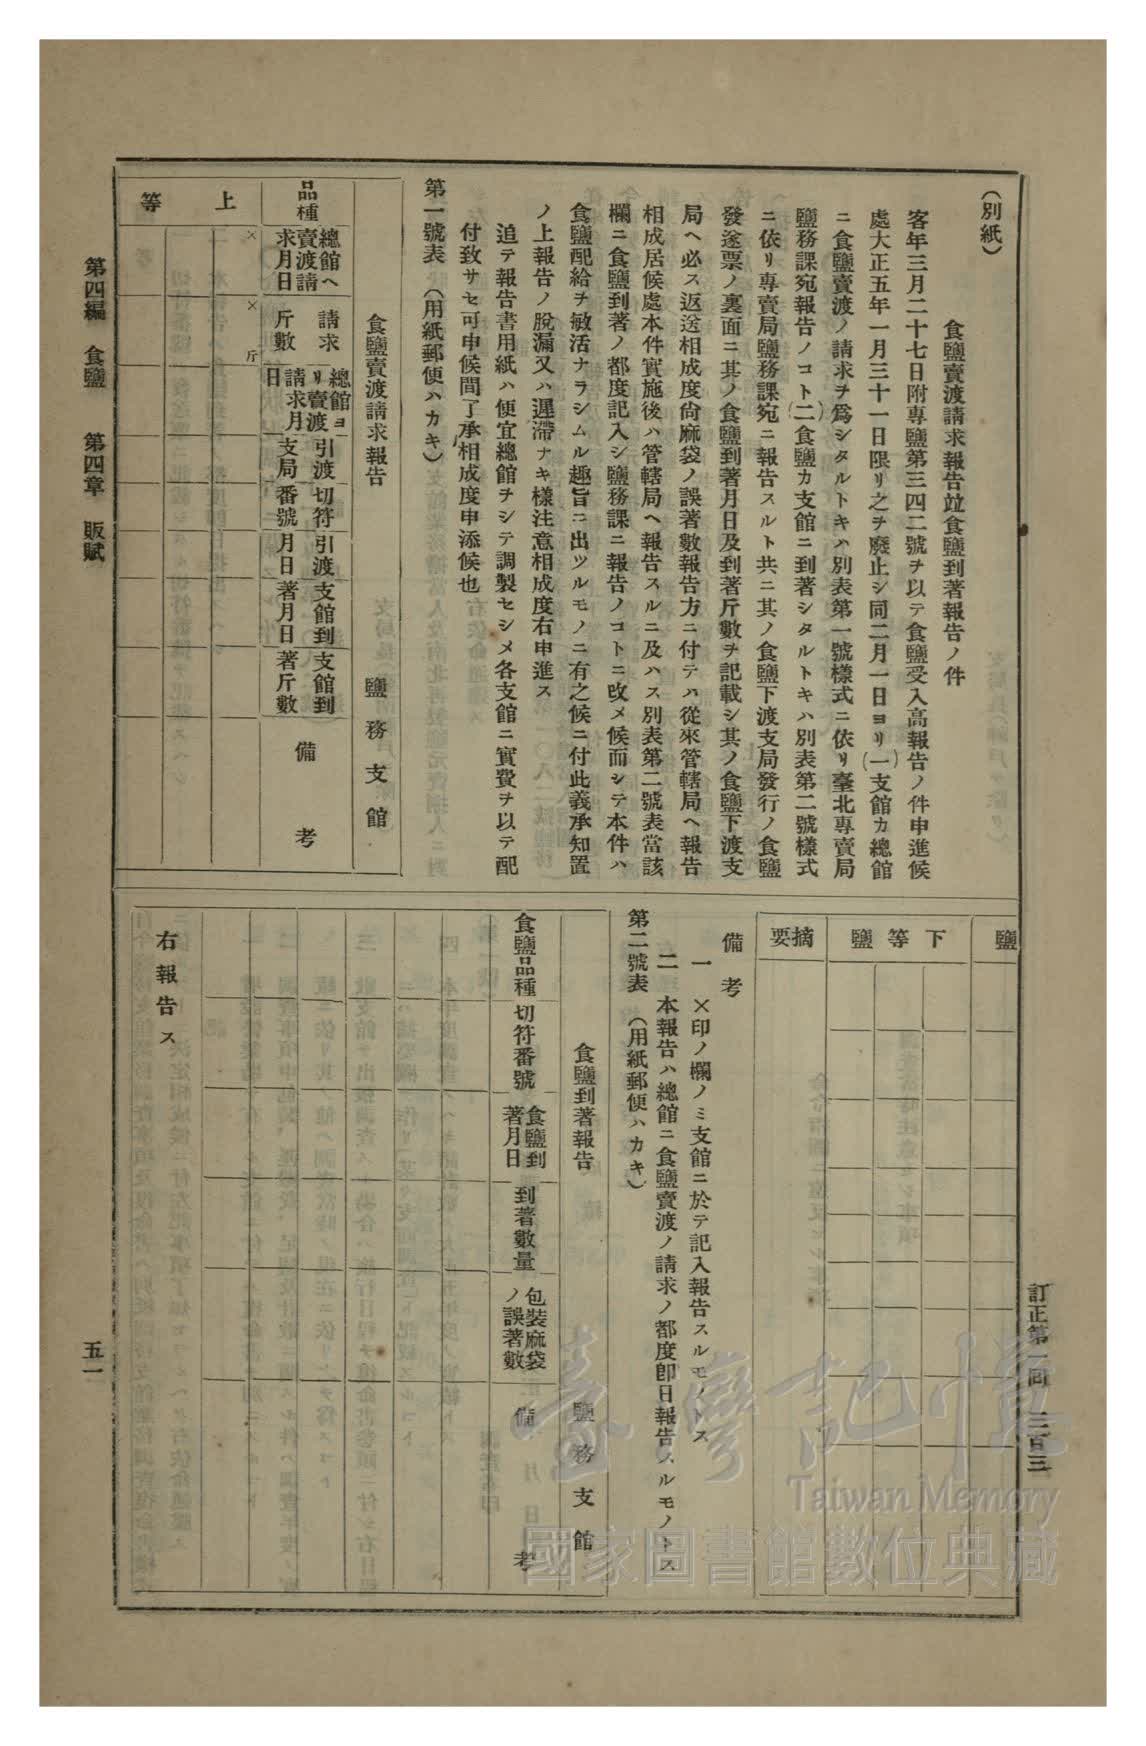 訂正第一回 三百三
（別紙）
食鹽賣渡請求報告竝食鹽到著報告ノ件
客年三月二十七日附專鹽第三四二號ヲ以テ食鹽受入高報告ノ件申進候
處大正五年一月三十一日限リ之ヲ廢止シ同二月一日ヨリ（一）支館カ總館
ニ食鹽賣渡ノ請求ヲ爲シタルトキハ別表第一號樣式ニ依リ臺北專賣局
鹽務課宛報告ノコト（二）食鹽カ支館ニ到著シタルトキハ別表第二號樣式
ニ依リ專賣局鹽務課宛ニ報告スルト共ニ其ノ食鹽下渡支局發行ノ食鹽
發送票ノ裏面ニ其ノ食鹽到著月日及到著斤數ヲ記載シ其ノ食鹽下渡支
局ヘ必ス返送相成度尙麻袋ノ誤著數報告方ニ付テハ從來管轄局ヘ報告
相成居候處本件實施後ハ管轄局ヘ報告スルニ及ハス別表第二號表當該
欄ニ食鹽到著ノ都度記入シ鹽務課ニ報告ノコトニ改メ候而シテ本件ハ
食鹽配給ヲ敏活ナラシムル趣旨ニ出ツルモノニ有之候ニ付此義承知置
ノ上報告ノ脫漏又ハ遲滯ナキ樣注意相成度右申進ス
追テ報告書用紙ハ便宜總館ヲシテ調製セシメ各支館ニ實費ヲ以テ配
付致サセ可申候間了承相成度申添候也
第一號表（用紙郵便ハカキ）
食鹽賣渡請求報告
鹽務支館
品種
總館ヘ賣渡請求月日
請求斤數
總館ヨリ賣渡請求月日
引渡支局
切符番號
引渡月日
支館到著月日
支館到著斤數
備考
×
×
斤
上等
鹽
下等鹽
摘要
備考
一 ×印ノ欄ノミ支館ニ於テ記入報告スルモノトス
二 本報告ハ總館ニ食鹽賣渡ノ請求ノ都度卽日報告スルモノトス
第二號表（用紙郵便ハカキ）
食鹽到著報告
鹽務支館
食鹽品種
切符番號
食鹽到著月日
到著數量
包裝麻袋ノ誤著數
備考
右報告ス
第四編 食鹽 第四章 販賦
五一
臺灣記憶
Taiwan Memory
國家圖書館數位典藏